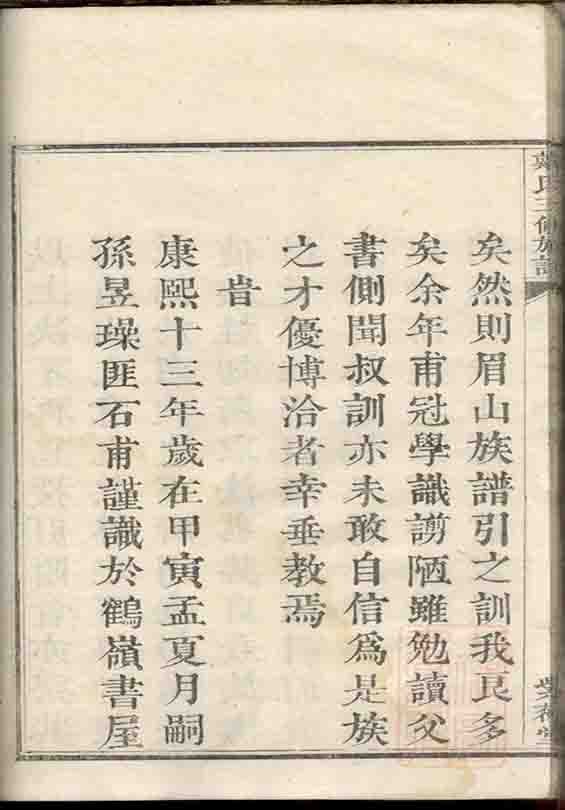 矣然則眉山族譜引之訓我良多
矣余年甫冠學識謭陋雖勉讀父
書側聞叔訓亦未敢自信爲是族
之才優博洽者幸垂教焉
旹
康熙十三年歲在甲寅孟夏月嗣
孫昱璪匪石甫謹識於鶴嶺書屋